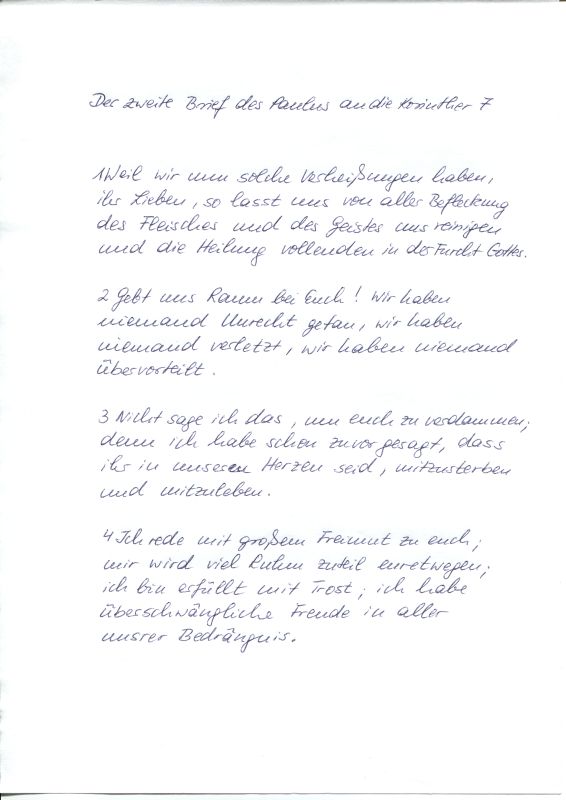 Der zweite Brief des Paulus an die Korinther 7
1 Weil wir nun solche Verheißungen haben,
ihr Lieben, so lasst uns von aller Befleckung
des Fleisches und des Geistes uns reinigen
und die Heilung vollenden in der Furcht Gottes.
2 Gebt uns Raum bei Euch! Wir haben
niemand Unrecht getan, wir haben
niemand verletzt, wir haben niemand
übervorteilt.
3 Nicht sage ich das, um euch zu verdammen;
denn ich habe schon zuvor gesagt, dass
ihr in unseren Herzen seid, mitzusterben
und mitzuleben.
4 Ich rede mit großem Freimut zu euch;
mir wird viel Ruhm zuteil euretwegen;
ich bin erfüllt mit Trost; ich habe
überschwängliche Freude in aller
unsrer Bedrängnis.